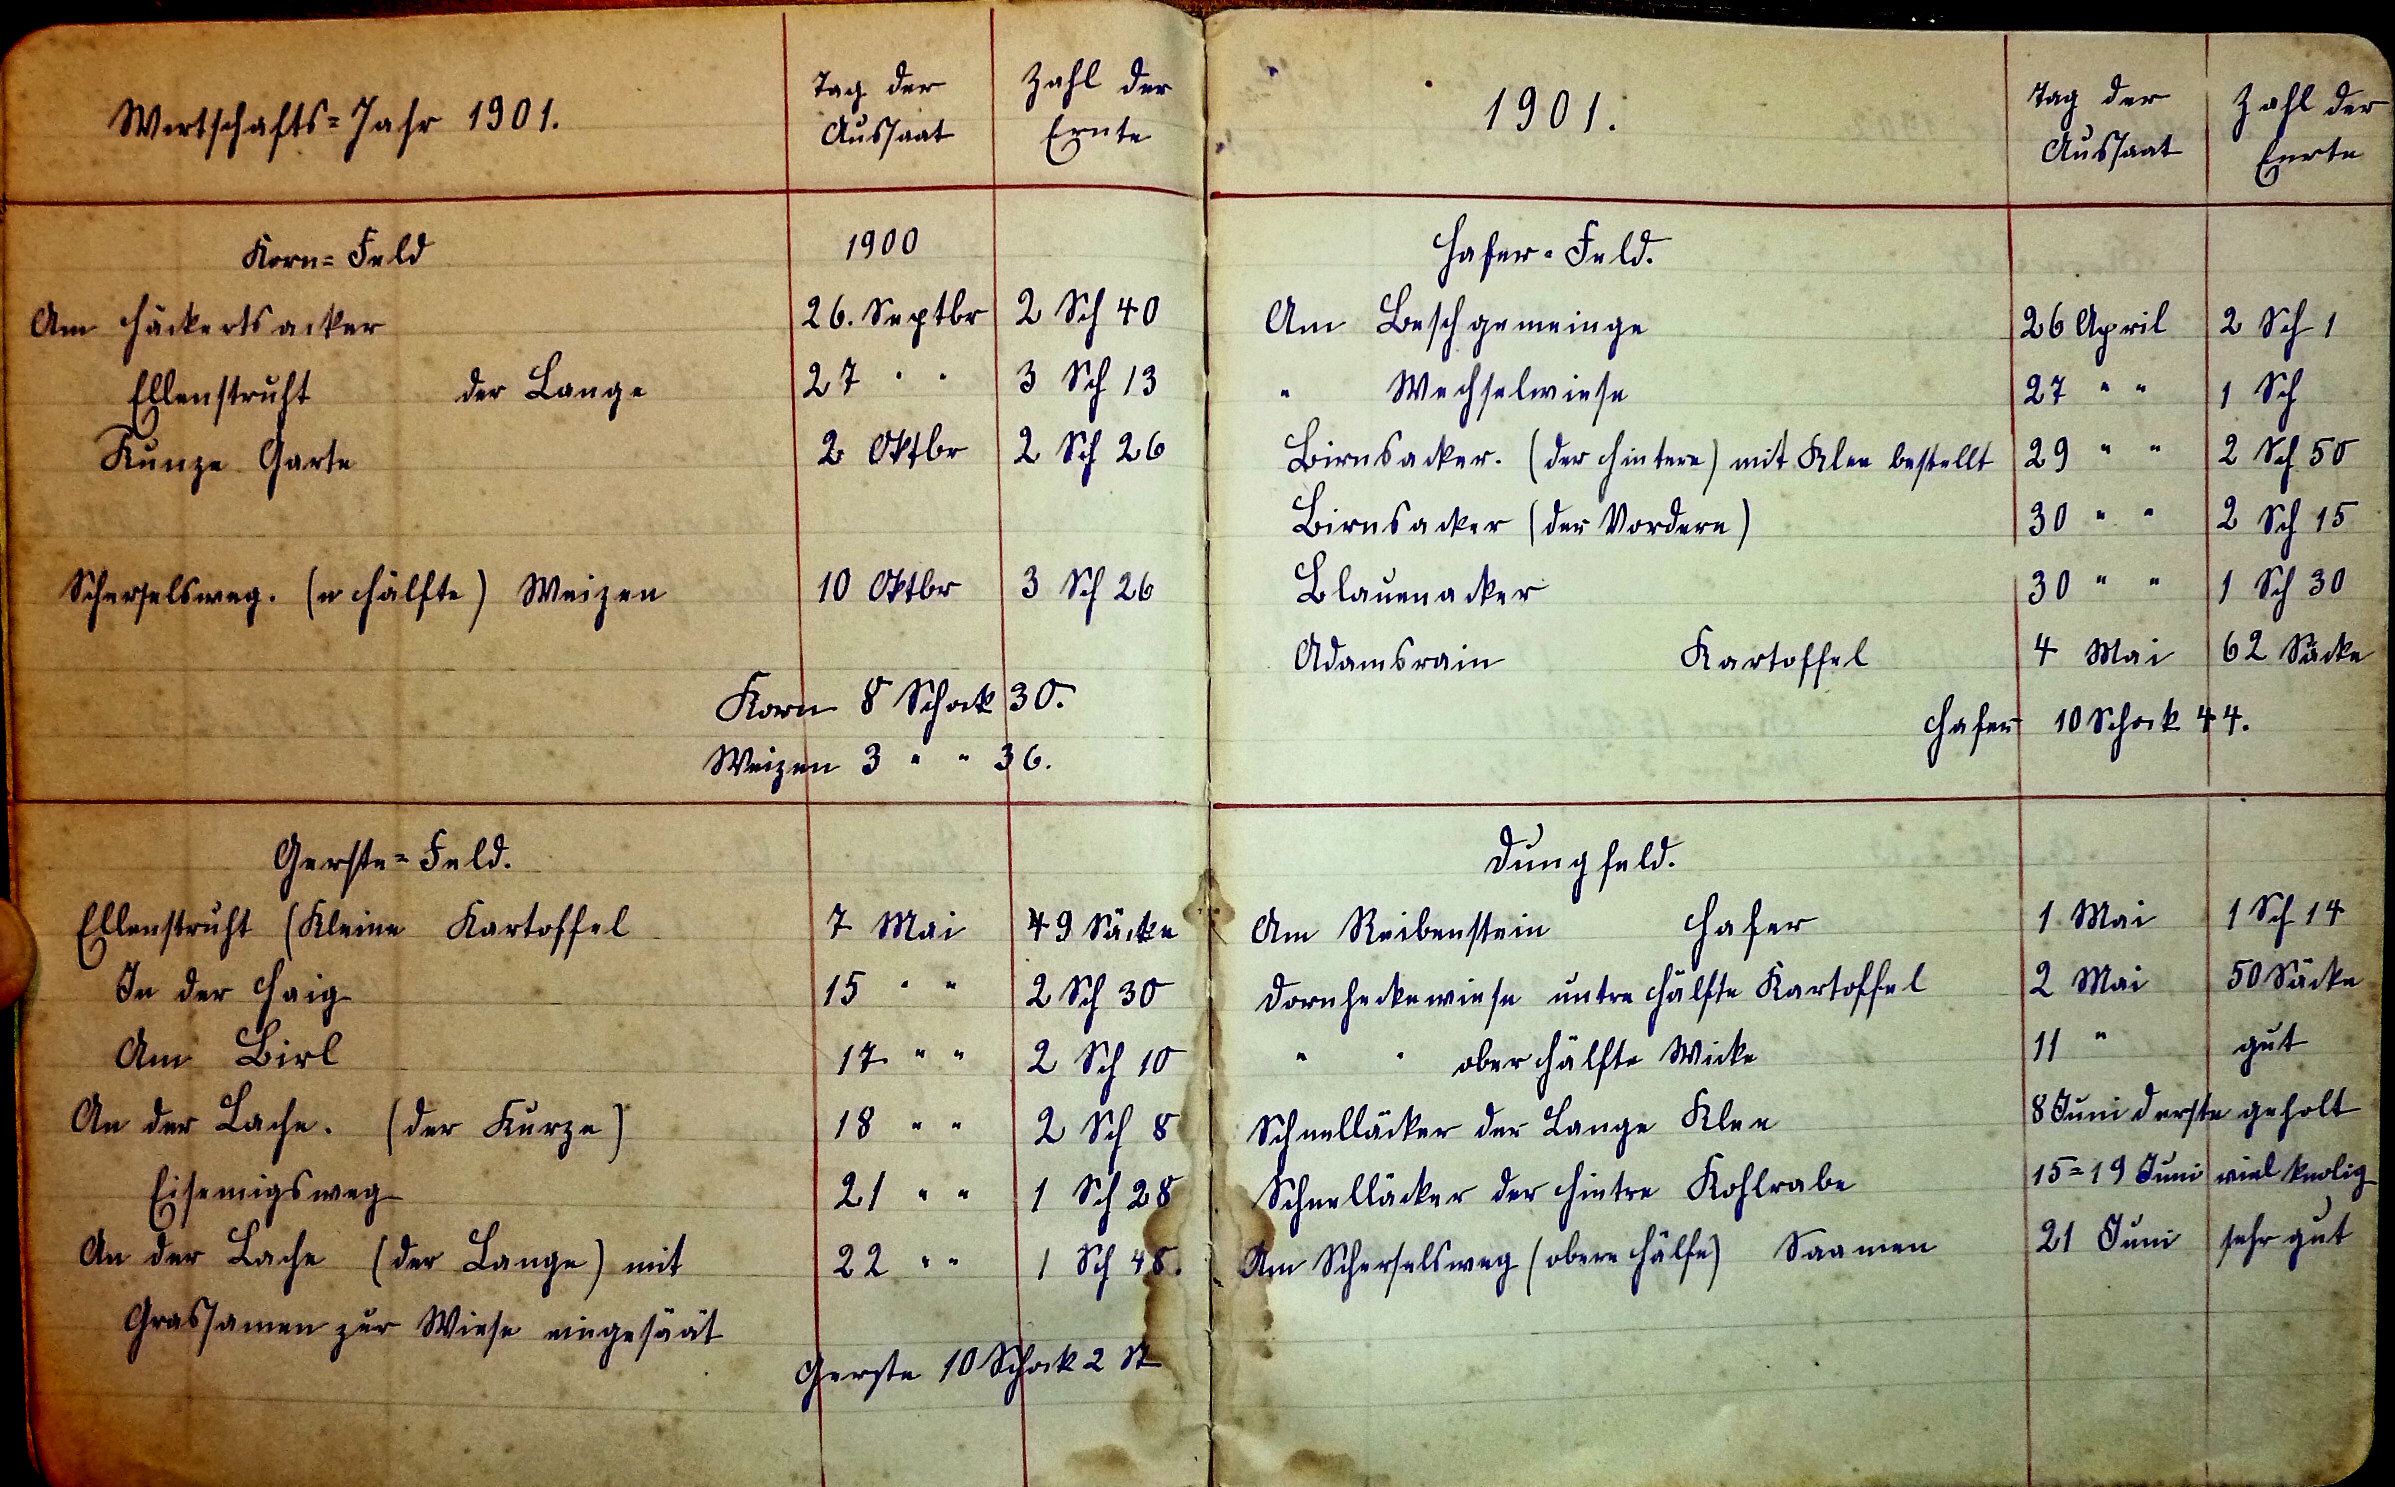 Wirtschafts=Jahr 1901.
Tag der Aussaat
Zahl der Ernte
Korn=Feld
1900
Am Häckertsacker 26. Septbr 2 Sch 40
Ellenstruht der Lange 27 " " 3 Sch 13
Kunze Garte 2 Oktbr 2 Sch 26
Scherselsweg. (u Hälfte) Weizen 10 Oktbr 3 Sch 26
Korn 8 Schock 30.
Weizen 3 " " 36.
Gerste=Feld.
Ellenstruht (Kleine Kartoffel 7 Mai 49 Säcke
In der Haig 15 " " 2 Sch 30
Am Birl 17 " " 2 Sch 10
An der Lache. (der Kurze) 18 " " 2 Sch 8
Eisemigsweg 21 " " 1 Sch 28
An der Lache (der Lange) mit 22 " " 1 Sch 48.
Grassamen zur Wiese eingesäät
Gerste 10 Schock 2 St
1901.
Tag der Aussaat
Zahl der Enrte
Hafer=Feld.
Am Beschgemeinge 26 April 2 Sch 1
" Wechselwiese 27 " " 1 Sch
Birnsacker. (der Hintere) mit Klee bestellt 29 " " 2 Sch 50
Birnsacker (der Vordere) 30 " " 2 Sch 15
Blauenacker 30 " " 1 Sch 30
Adamsrain Kartoffel 4 Mai 62 Säcke
Hafer 10 Schock 44.
Dungfeld.
Am Reibenstein Hafer 1 Mai 1 Sch 14
Dornheckewiese untre Hälfte Kartoffel 2 Mai 50 Säcke
" " ober Hälfte Wicke 11 " gut
Schnelläcker der Lange Klee 8 Juni d erste geholt
Schnelläcker der Hintre Kohlrabe 15=19 Juni viel knolig
Am Scherselsweg (obere Hälfe) Saamen 21 Juni sehr gut